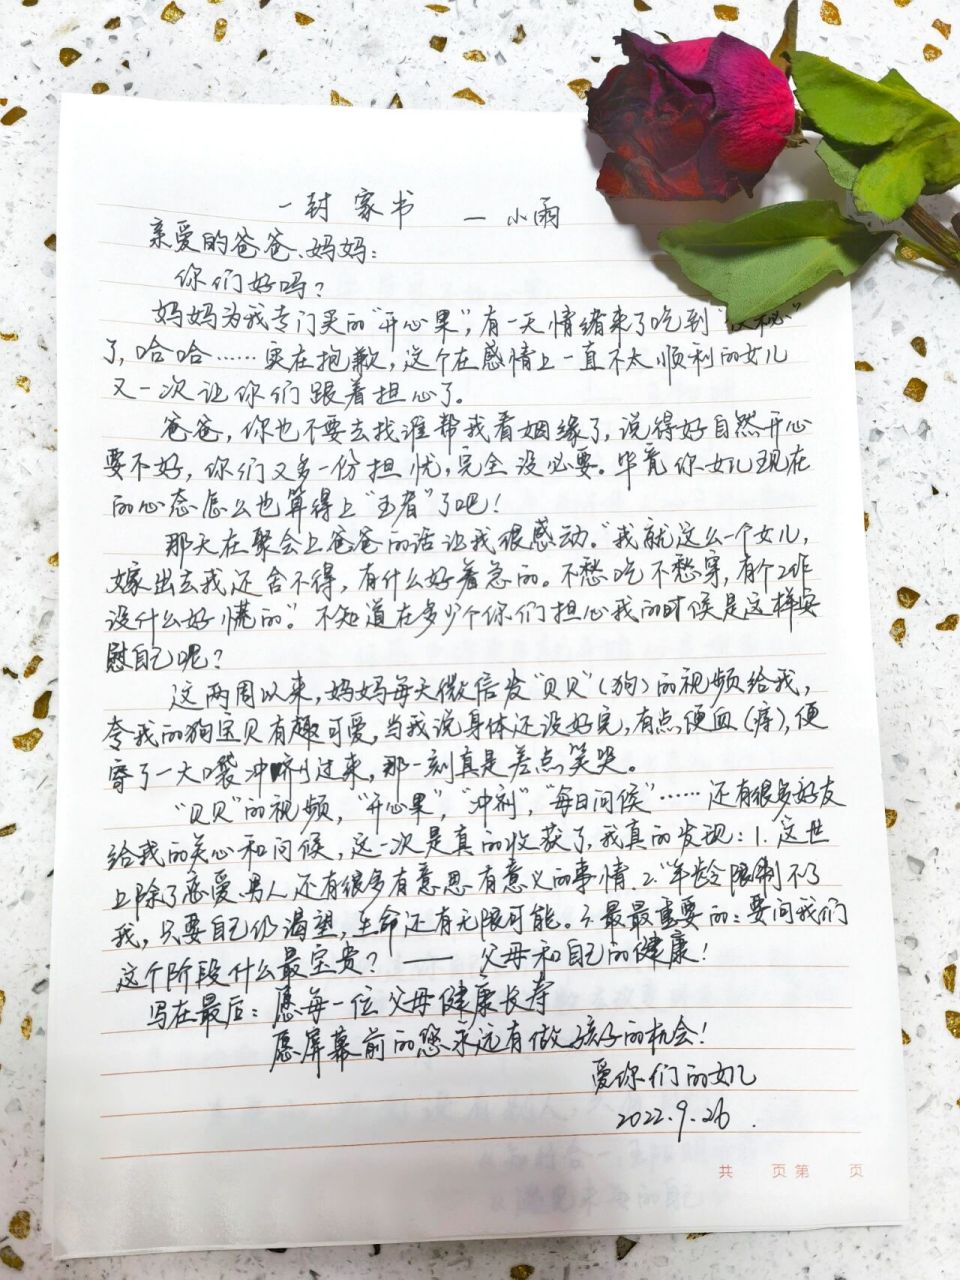 一封家书 — 小雨
亲爱的爸爸、妈妈：
你们好吗？
妈妈为我专门买的“开心果”，有一天情绪来了吃到“秘”
了，哈哈……实在抱歉，这个在感情上一直不太顺利的女儿
又一次让你们跟着担心了。
爸爸，你也不要去找谁帮我看姻缘了，说得好自然开心
要不好，你们又多一份担忧，完全没必要。毕竟你女儿现在
的心态怎么也算得上“王者”了吧！
那天在聚会上爸爸的话让我很感动。“我就这么一个女儿，
嫁出去我还舍不得，有什么好着急的。不愁吃不愁穿，有个工作
没什么好慌的。”不知道在多少个你们担心我的时候是这样安
慰自己呢？
这两周以来，妈妈每天微信发“贝贝”（狗）的视频给我，
夸我的狗宝贝有趣可爱，当我说身体还没好完，有点便血（痔），便
寄了一大袋冲剂过来，那一刻真是差点笑哭。
“贝贝”的视频，“开心果”，“冲剂”，“每日问候”……还有很多好友
给我的关心和问候，这一次是真的收获了，我真的发现：1.这世
上除了恋爱、男人还有很多有意思有意义的事情.2.“年龄”限制不了
我，只要自己仍渴望，生命还有无限可能。3.最最重要的：要问我们
这个阶段什么最宝贵？——父母和自己的健康！
写在最后：愿每一位父母健康长寿
愿屏幕前的您永远有做孩子的机会！
爱你们的女儿
2022.9.26.
共 页 第 页